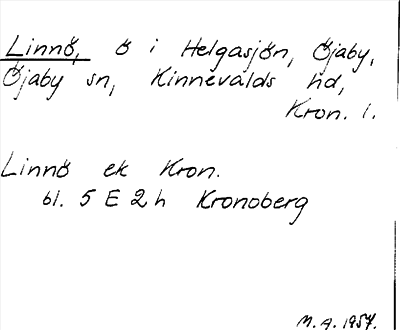 Linnö, ö i Helgasjön, Öjaby,
Öjaby sn, Kinnevalds hd,
Kron. l.
Linnö ek Kron.
bl. 5 E 2 h Kronoberg
M.A. 1957.